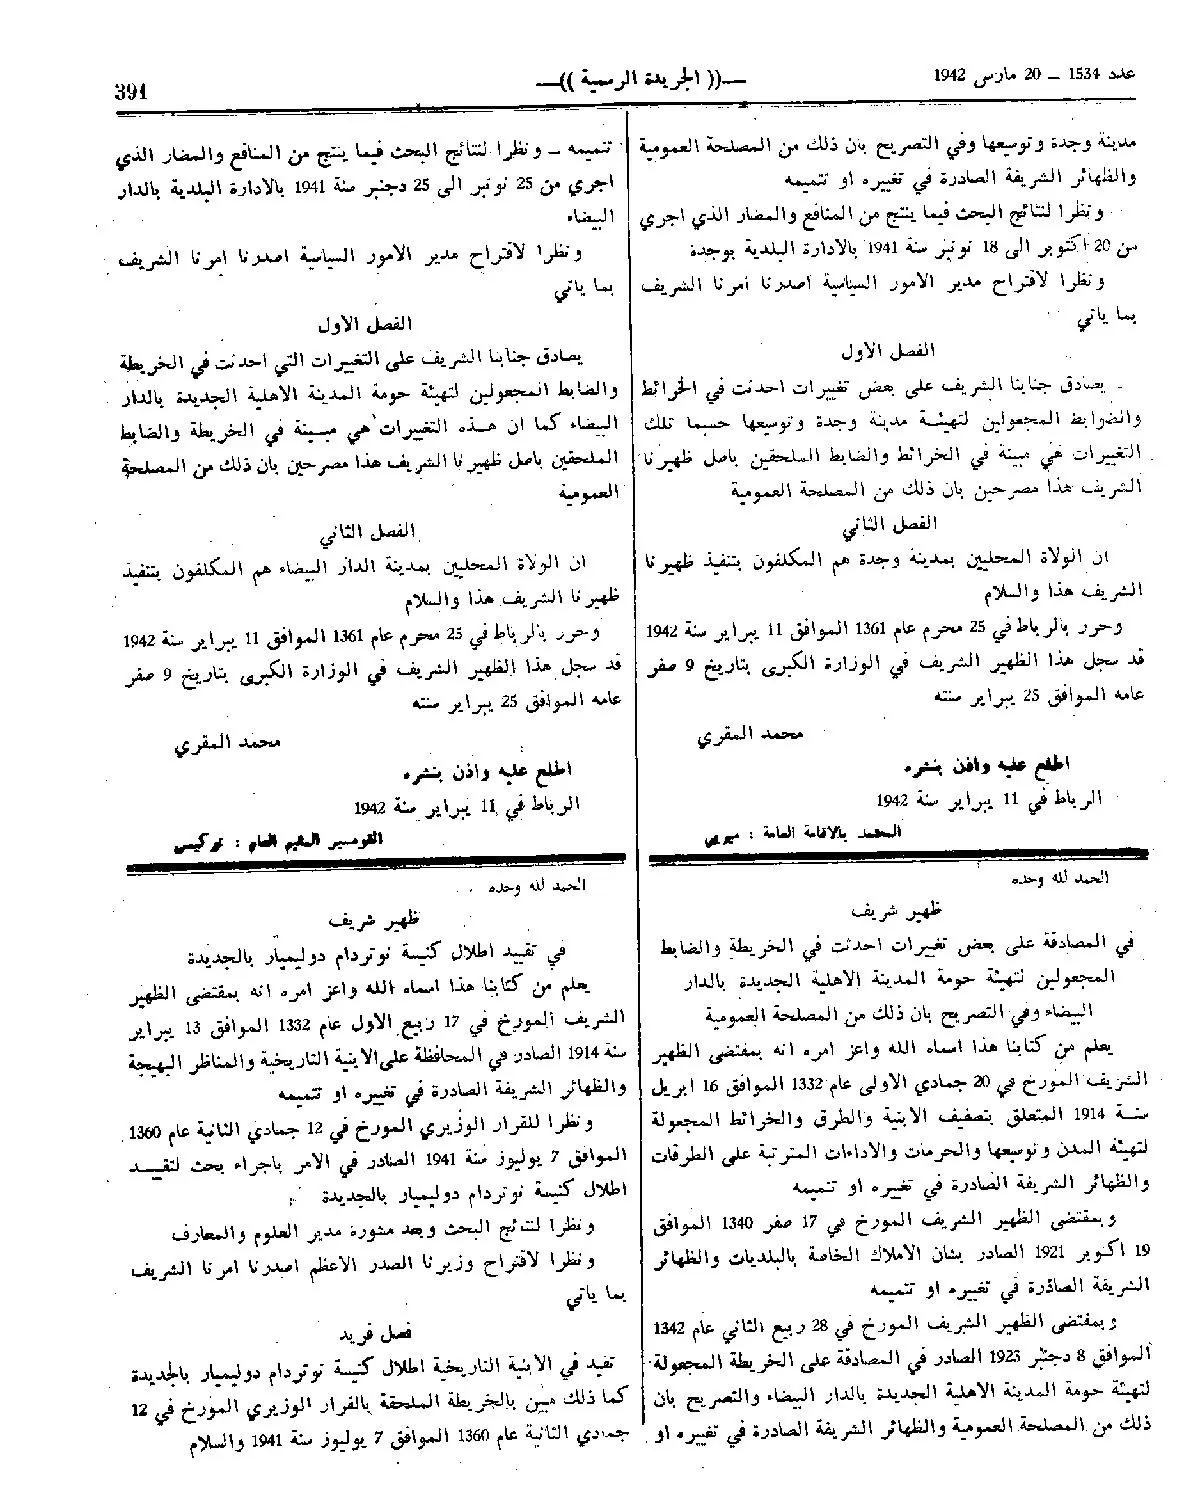 عدد 1534 ــ 20 مارس 1942
ــ(( الجريدة الرسمية ))ــ
391
مدينة وجدة وتوسيعها وفي التصريح بان ذلك من المصلحة العمومية
والظهائر الشريفة الصادرة في تغييره او تتميمه
ونظرا لنتائج البحث فيما ينتج من المنافع والمضار الذي اجري
من 20 اكتوبر الى 18 نونبر سنة 1941 بالادارة البلدية بوجدة
ونظرا لاقتراح مدير الامور السياسية اصدرنا امرنا الشريف
بما ياتي
الفصل الاول
يصادق جنابنا الشريف على بعض تغييرات احدثت في الخرائط
والضوابط المجعولين لتهيئة مدينة وجدة وتوسيعها حسبما تلك
التغييرات هي مبينة في الخرائط والضابط الملحقين باصل ظهيرنا
الشريف هذا مصرحين بان ذلك من المصلحة العمومية
الفصل الثاني
ان الولاة المحليين بمدينة وجدة هم المكلفون بتنفيذ ظهيرنا
الشريف هذا والسلام
وحرر بالرباط في 25 محرم عام 1361 الموافق 11 يبراير سنة 1942
قد سجل هذا الظهير الشريف في الوزارة الكبرى بتاريخ 9 صفر
عامه الموافق 25 يبراير سنته
محمد المقري
اطلع عليه واذن بنشره
الرباط في 11 يبراير سنة 1942
المعتمد بالاقامة العامة : ميري
الحمد لله وحده
ظهير شريف
في المصادقة على بعض تغييرات احدثت في الخريطة والضابط
المجعولين لتهيئة حومة المدينة الاهلية الجديدة بالدار
البيضاء وفي التصريح بان ذلك من المصلحة العمومية
يعلم من كتابنا هذا اسماه الله واعز امره انه بمقتضى الظهير
الشريف المورخ في 20 جمادي الاولى عام 1332 الموافق 16 ابريل
سنة 1914 المتعلق بتصفيف الابنية والطرق والخرائط المجعولة
لتهيئة المدن وتوسيعها والحرمات والاداءات المترتبة على الطرقات
والظهائر الشريفة الصادرة في تغييره او تتميمه
وبمقتضى الظهير الشريف المورخ في 17 صفر 1340 الموافق
19 اكتوبر 1921 الصادر بشان الاملاك الخاصة بالبلديات والظهائر
الشريفة الصادرة في تغييره او تتميمه
وبمقتضى الظهير الشريف المورخ في 28 ربيع الثاني عام 1342
الموافق 8 دجنبر 1923 الصادر في المصادقة على الخريطة المجعولة
لتهيئة حومة المدينة الاهلية الجديدة بالدار البيضاء والتصريح بان
ذلك من المصلحة العمومية والظهائر الشريفة الصادرة في تغييره او
تتميمه ــ ونظرا لنتائج البحث فيما ينتج من المنافع والمضار الذي
اجري من 25 نونبر الى 25 دجنبر سنة 1941 بالادارة البلدية بالدار
البيضاء
ونظرا لاقتراح مدير الامور السياسية اصدرنا امرنا الشريف
بما ياتي
الفصل الاول
يصادق جنابنا الشريف على التغييرات التي احدثت في الخريطة
والضابط المجعولين لتهيئة حومة المدينة الاهلية الجديدة بالدار
البيضاء كما ان هذه التغييرات هي مبينة في الخريطة والضابط
الملحقين باصل ظهيرنا الشريف هذا مصرحين بان ذلك من المصلحة
العمومية
الفصل الثاني
ان الولاة المحليين بمدينة الدار البيضاء هم المكلفون بتنفيذ
ظهيرنا الشريف هذا والسلام
وحرر بالرباط في 25 محرم عام 1361 الموافق 11 يبراير سنة 1942
قد سجل هذا الظهير الشريف في الوزارة الكبرى بتاريخ 9 صفر
عامه الموافق 25 يبراير سنته
محمد المقري
اطلع عليه واذن بنشره
الرباط في 11 يبراير سنة 1942
القومسير المقيم العام : نوكيس
الحمد لله وحده
ظهير شريف
في تقييد اطلال كنيسة نوتردام دوليميار بالجديدة
يعلم من كتابنا هذا اسماه الله واعز امره انه بمقتضى الظهير
الشريف المورخ في 17 ربيع الاول عام 1332 الموافق 13 يبراير
سنة 1914 الصادر في المحافظة على الابنية التاريخية والمناظر البهيجة
والظهائر الشريفة الصادرة في تغييره او تتميمه
ونظرا للقرار الوزيري المورخ في 12 جمادي الثانية عام 1360
الموافق 7 يوليوز سنة 1941 الصادر في الامر باجراء بحث لتقييد
اطلال كنيسة نوتردام دوليميار بالجديدة
ونظرا لنتائج البحث وبعد مشورة مدير العلوم والمعارف
ونظرا لاقتراح وزيرنا الصدر الاعظم اصدرنا امرنا الشريف
بما ياتي
فصل فريد
تقيد في الابنية التاريخية اطلال كنيسة نوتردام دوليميار بالجديدة
كما ذلك مبين بالخريطة الملحقة بالقرار الوزيري المورخ في 12
جمادي الثانية عام 1360 الموافق 7 يوليوز سنة 1941 والسلام